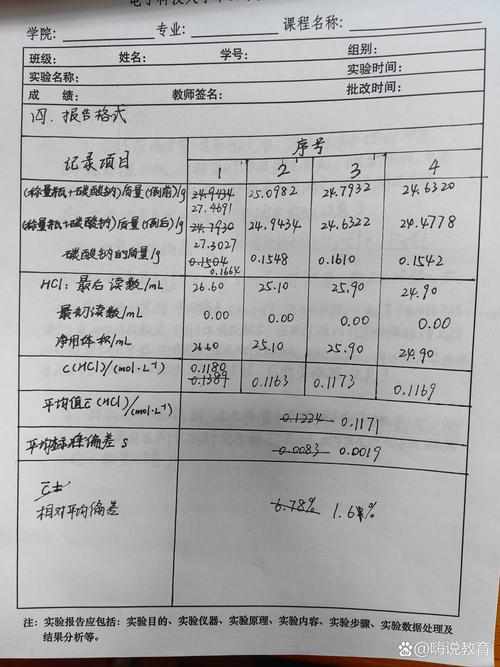 学院: 专业: 课程名称:
班级: 姓名: 学号: 组别:
实验名称: 实验时间:
成 绩: 教师签名: 批改时间:
四. 报告格式
记录项目 序号
1 2 3 4
(称量瓶+碳酸钠)质量(倒前)/g 24.9434 25.0982 24.7932 24.6320
27.4691
(称量瓶+碳酸钠)质量(倒后)/g 24.7930 24.9434 24.6322 24.4778
27.3027
碳酸钠的质量/g 0.1504 0.1548 0.1610 0.1542
0.1664
HCl: 最后读数/mL 26.60 25.10 25.90 24.90
最初读数/mL 0.00 0.00 0.00 0.00
净用体积/mL 26.60 25.10 25.90 24.90
0.1180
C(HCl)/(mol·L⁻¹) 0.1389 0.1163 0.1173 0.1169
平均值c̄(HCl)/(mol·L⁻¹) 0.1224 0.1171
平均标准偏差 s 0.0083 0.0019
c̄±
相对平均偏差 6.78% 1.64%
注: 实验报告应包括: 实验目的、实验仪器、实验原理、实验内容、实验步骤、实验数据处理及
结果分析等。
嗨说教育